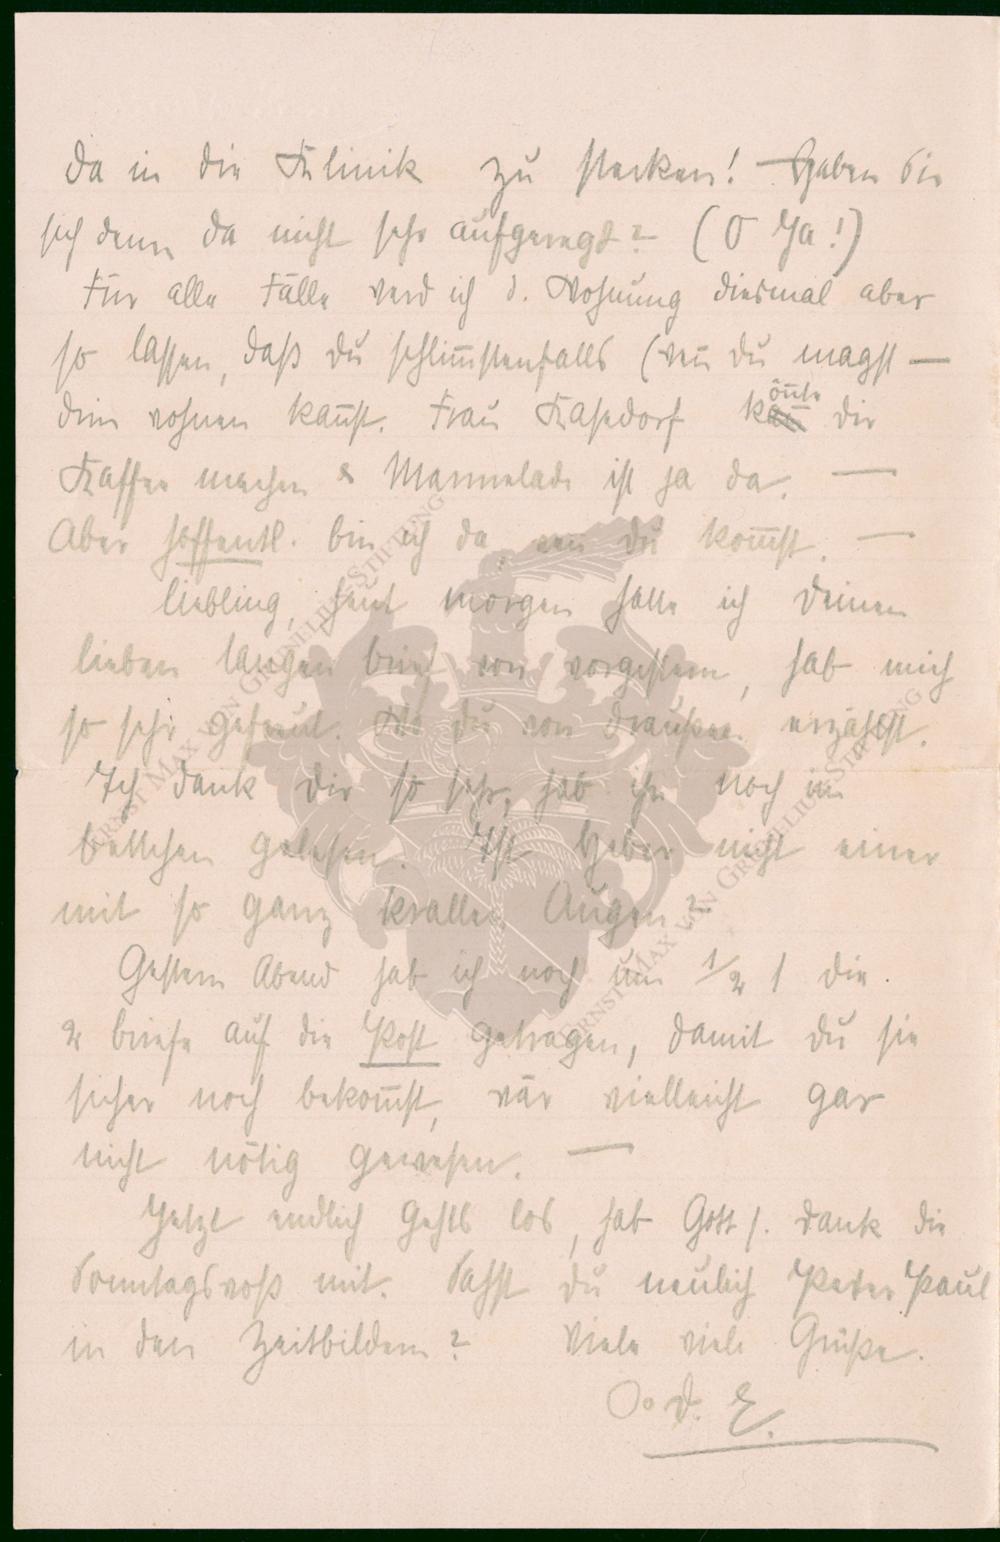 da in die Klinik zu stecken! Haben Sie
sich denn da nicht sehr aufgeregt? (O Ja!)
Für alle Fälle werd ich d. Wohnung diesmal aber
so lassen, daß du schlim̅stenfalls (wen̅ du magst —
drin wohnen kan̅st. Frau Kasedorf kön̅te dir
Kaffee machen & Marmelade ist ja da. —
Aber hoffentl. bin ich da, wen̅ du kom̅st. —
Liebling, heut morgen hatte ich deinen
lieben langen brief von vorgestern, hab mich
so sehr gefreut. du von draußen erzählst.
Ich dank dir so sehr, hab ihn noch im
bettchen gelesen. Ist Heber nicht einer
mit so ganz krallen Augen?
Gestern Abend hab ich noch um 1/2 1 die
2 briefe auf die Post getragen, damit du sie
sicher noch bekom̅st, wär vielleicht gar
nicht nötig gewesen. —
Jetzt endlich gehts los, hab Gott s. dank die
Sonntagspost mit. Sahst du neulich Peter Paul
in den Zeitbildern? Viele viele Grüße.
d. E.
ERNST MAX VON GRUNELIUS-STIFTUNG
ERNST MAX VON GRUNELIUS-STIFTUNG